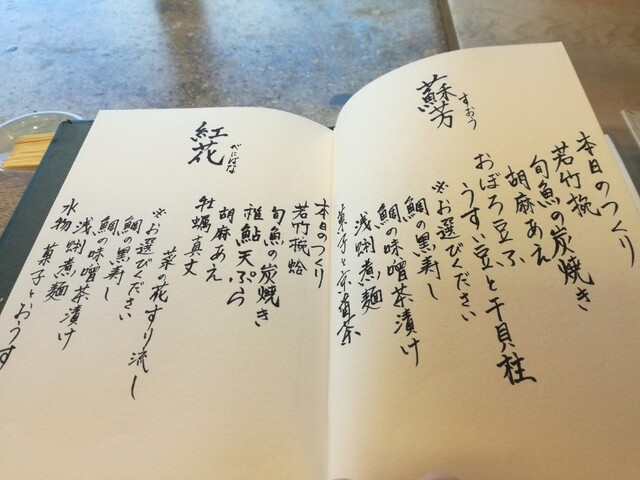 蘇芳
すおう
本日のつくり
若竹椀
旬魚の炭焼き
胡麻あえ
おぼろ豆ふ
うすい豆と干貝柱
※お選びください
鯛の黒寿し
鯛の味噌茶漬け
浅蜊煮麺
菓子と
紅花
べにばな
本日のつくり
若竹椀蛤
旬魚の炭焼き
稚鮎天ぷら
胡麻あえ
牡蠣真丈
菜の花すり流し
※お選びください
鯛の黒寿し
鯛の味噌茶漬け
浅蜊煮麺
水物 菓子とおうす